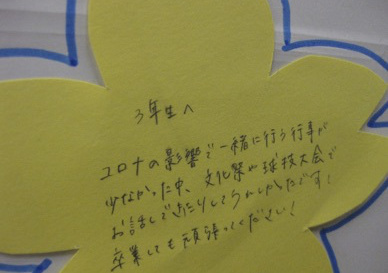 3年生へ
コロナの影響で一緒に行う行事が
少なかった中、文化祭や球技大会で
お話しできたりしてうれしかったです!
卒業しても頑張ってください!